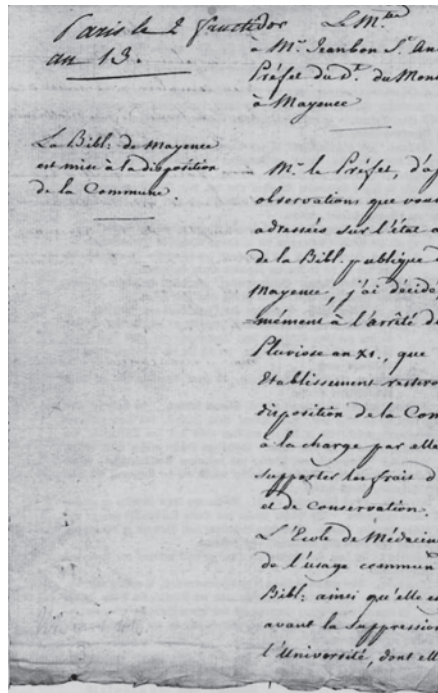 Paris le 2 fructidor
an 13.
La Bibl: de Mayence
est mise à la disposition
de la Commune.
Le M.tre
à M.r Jeanbon S.t An
Préfet du D.t du Mon
à Mayence
M.r le Préfet, d'ap
observations que vous
adressées sur l'état a
de la Bibl. publique
Mayence, j'ai décidé
mément à l'arrêté d
Pluviose an XI., que
Etablissement rester
disposition de la Con
à la charge par elle
supporter les frais d
et de Conservation.
L'Ecole de Médecin
de l'usage commun
Bibl: ainsi qu'elle e
avant la suppression
l'Université, dont ell